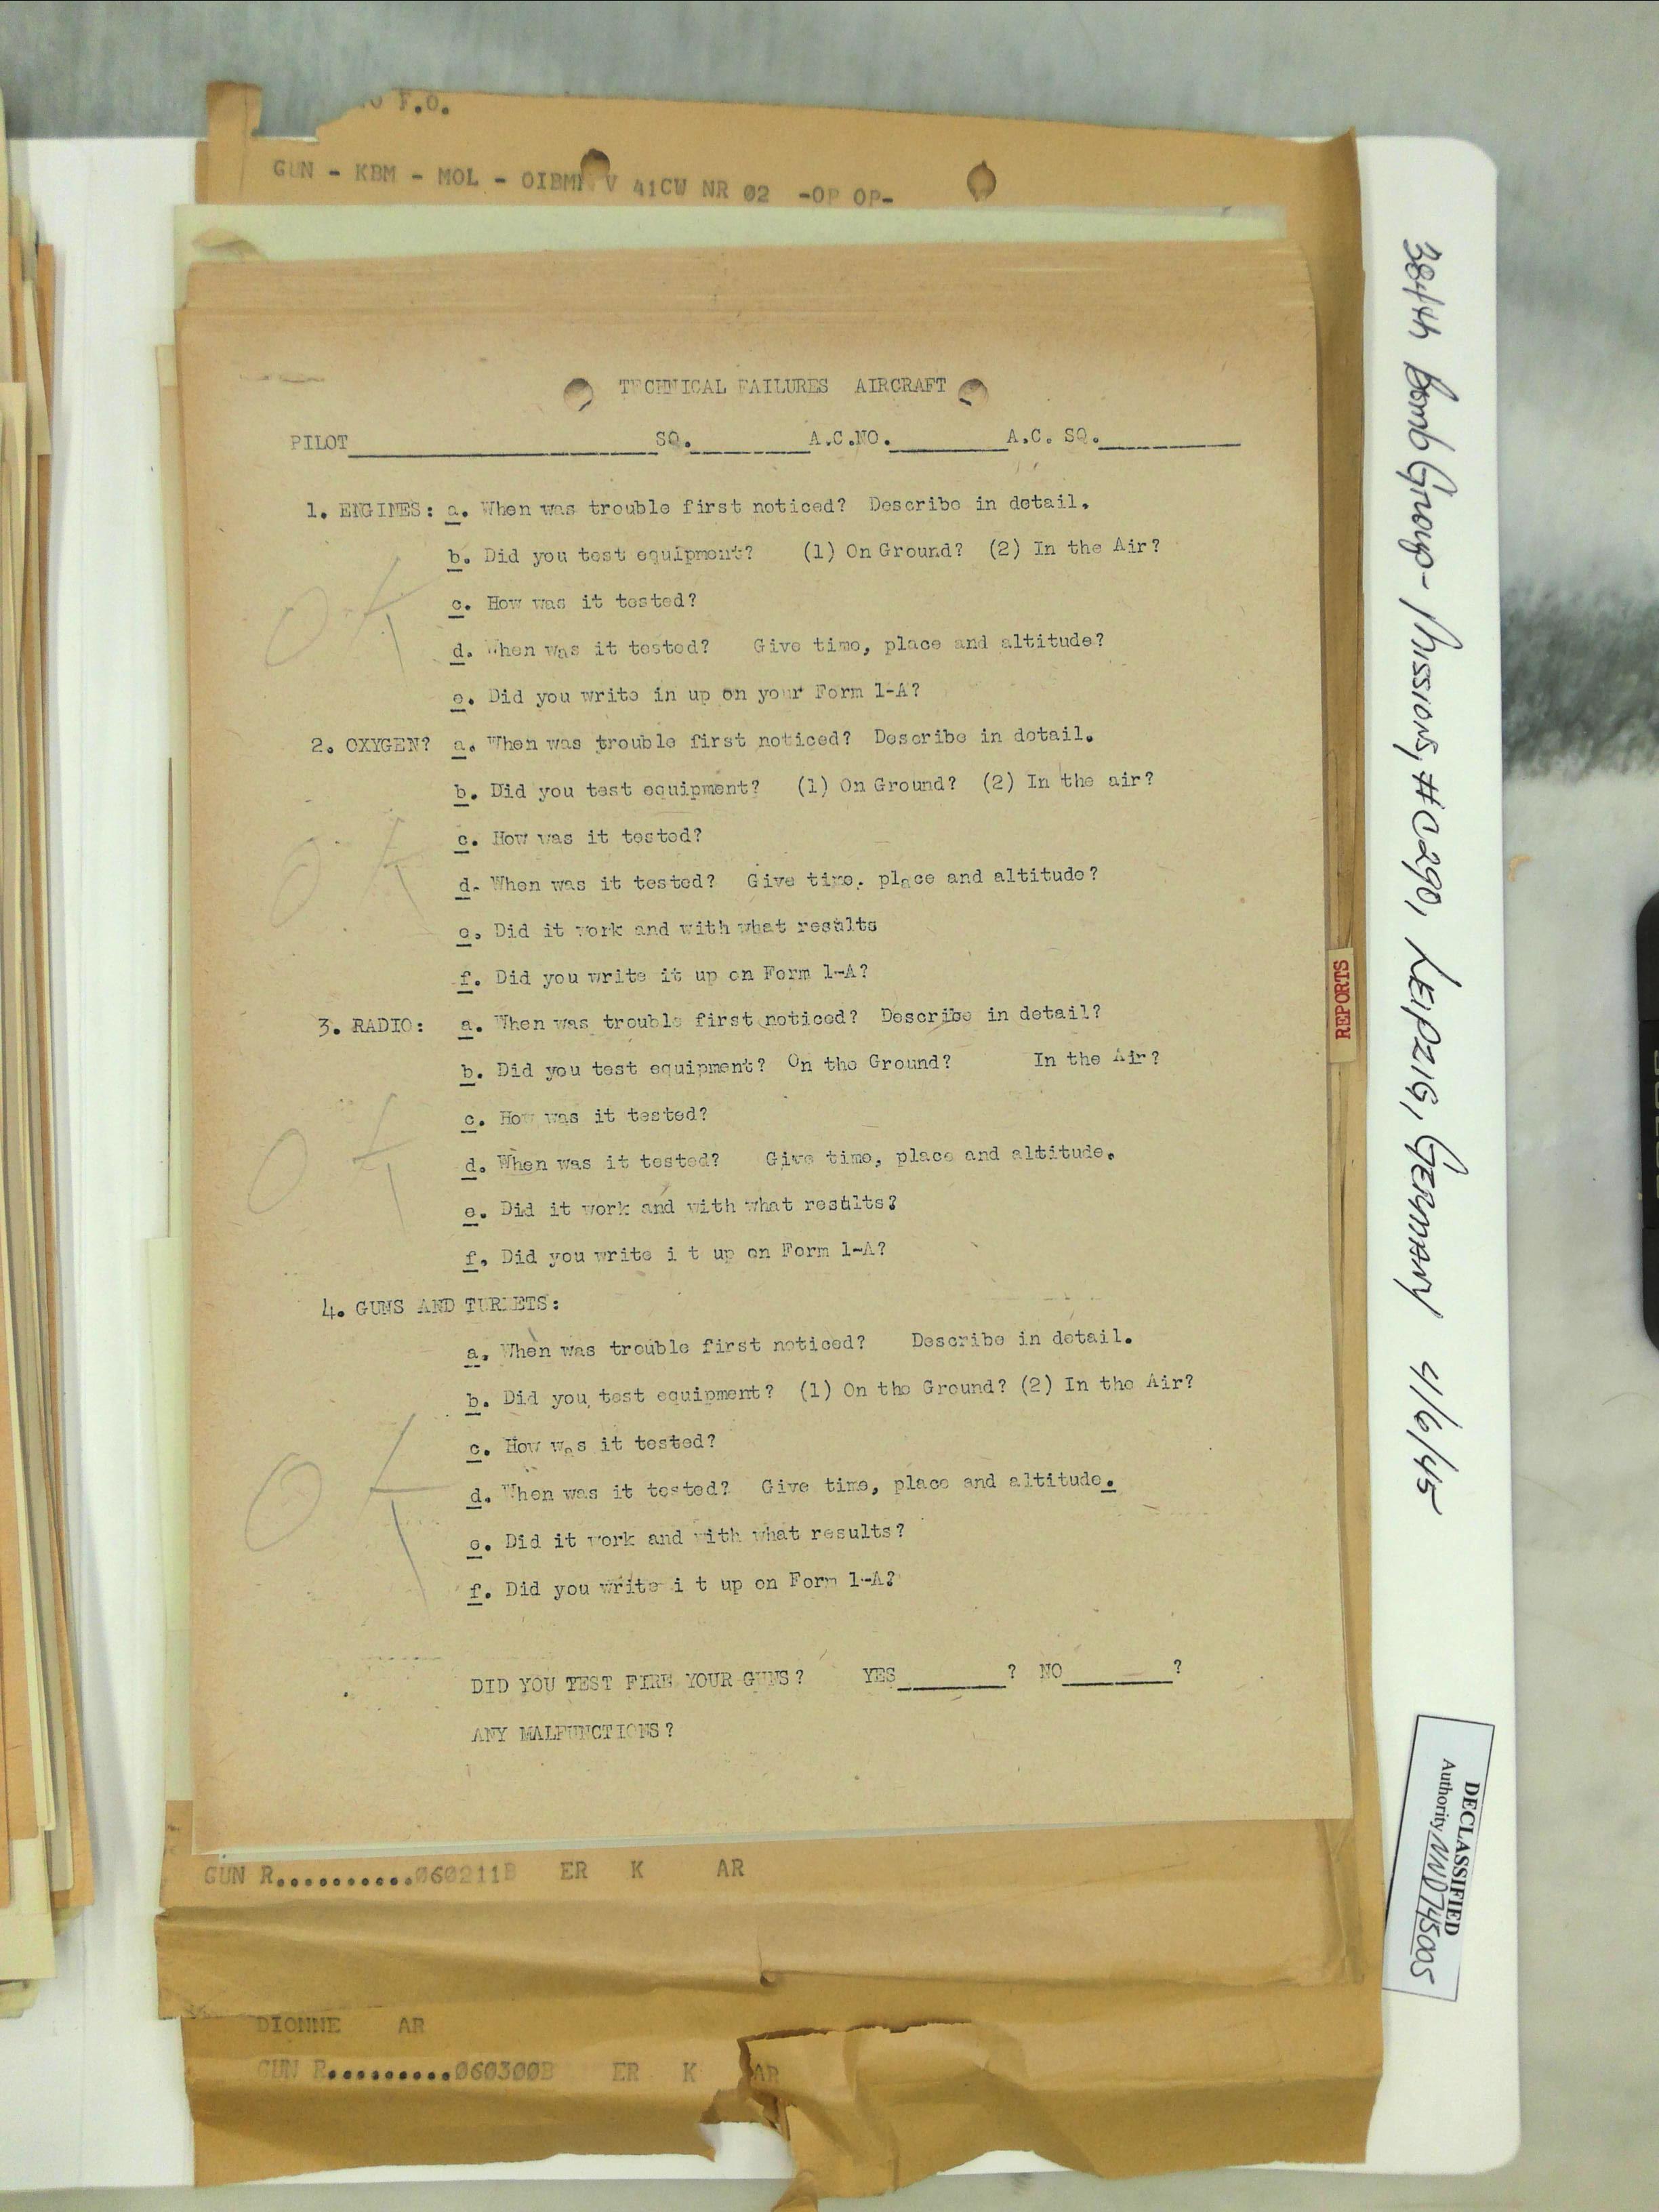 F.O.
GUN - KBM - MOL - OIBMN V 41CW NR 02 -OP OP-
TECHNICAL FAILURES AIRCRAFT
PILOT____ SQ.____ A.C.NO.____ A.C. SQ.____
1. ENGINES: a. When was trouble first noticed? Describe in detail.
b. Did you test equipment? (1) On Ground? (2) In the Air?
c. How was it tested?
d. When was it tested? Give time, place and altitude?
e. Did you write in up on your Form 1-A?
OK
2. OXYGEN? a. When was trouble first noticed? Describe in detail.
b. Did you test equipment? (1) On Ground? (2) In the air?
c. How was it tested?
d. When was it tested? Give time. place and altitude?
e. Did it work and with what results
f. Did you write it up on Form 1-A?
OK
3. RADIO: a. When was trouble first noticed? Describe in detail?
b. Did you test equipment? On the Ground? In the Air?
c. How was it tested?
d. When was it tested? Give time, place and altitude.
e. Did it work and with what results?
f. Did you write i t up on Form 1-A?
OK
4. GUNS AND TURRETS:
a. When was trouble first noticed? Describe in detail.
b. Did you test equipment? (1) On the Ground? (2) In the Air?
c. How was it tested?
d. When was it tested? Give time, place and altitude.
e. Did it work and with what results?
f. Did you write i t up on Form 1-A?
OK
DID YOU TEST FIRE YOUR GUNS? YES____? NO____?
ANY MALFUNCTIONS?
GUN R..........060211B ER K AR
DIONNE AR
GUN R..........060300B ER K AR
REPORTS
384th Bomb Group - Missions, #C290, LEIPZIG, GERMANY 4/6/45
DECLASSIFIED
Authority NND745005